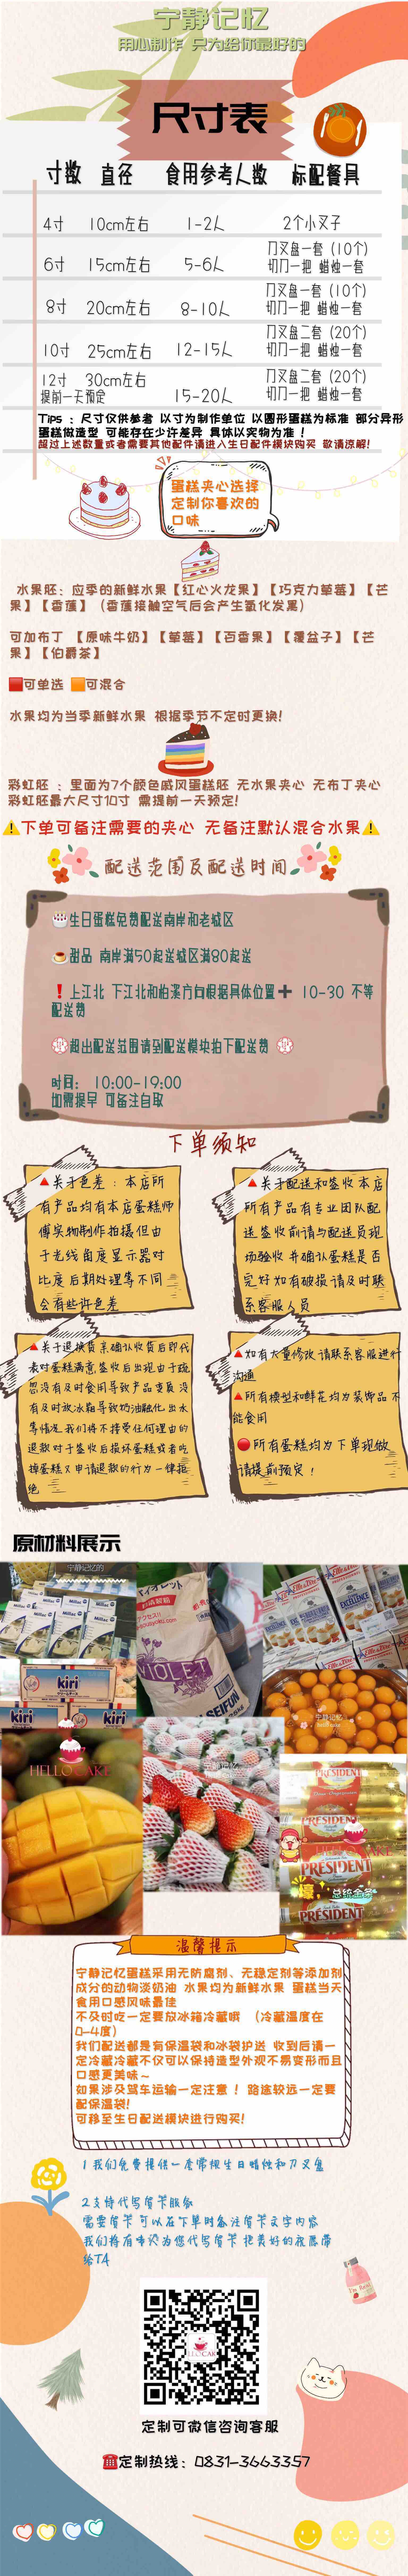 宁静记忆
用心制作 只为给你最好的
尺寸表
寸数 直径 食用参考人数 标配餐具
4寸 10cm左右 1-2人 2个小叉子
6寸 15cm左右 5-6人 刀叉盘一套（10个）
切刀一把 蜡烛一套
8寸 20cm左右 8-10人 刀叉盘一套（10个）
切刀一把 蜡烛一套
10寸 25cm左右 12-15人 刀叉盘二套（20个）
切刀一把 蜡烛一套
12寸 30cm左右 15-20人 刀叉盘二套（20个）
提前一天预定 切刀一把 蜡烛一套
Tips：尺寸仅供参考 以寸为制作单位 以圆形蛋糕为标准 部分异形
蛋糕做造型 可能存在少许差异 具体以实物为准！
超过上述数量或者需要其他配件请进入生日配件模块购买 敬请谅解!
蛋糕夹心选择
定制你喜欢的
口味
水果胚：应季的新鲜水果【红心火龙果】【巧克力草莓】【芒
果】【香蕉】（香蕉接触空气后会产生氧化发黑）
可加布丁 【原味牛奶】【草莓】【百香果】【覆盆子】【芒
果】【伯爵茶】
可单选 可混合
水果均为当季新鲜水果 根据季节不定时更换!
彩虹胚 ：里面为7个颜色戚风蛋糕胚 无水果夹心 无布丁夹心
彩虹胚最大尺寸10寸 需提前一天预定!
下单可备注需要的夹心 无备注默认混合水果
配送范围及配送时间
生日蛋糕免费配送南岸和老城区
甜品 南岸满50起送城区满80起送
上江北 下江北和柏溪方向根据具体位置➕ 10-30 不等
配送费
超出配送范围请到配送模块拍下配送费
时间： 10:00-19:00
如需提早 可备注自取
下单须知
关于色差：本店所
有产品均有本店蛋糕师
傅实物制作拍摄但由
于光线角度显示器对
比度后期处理等不同
会有些许色差
关于配送和签收本店
所有产品有专业团队配
送签收前请与配送员现
场验收并确认蛋糕是否
完好如有破损请及时联
系客服人员
关于退换货亲确认收货后即代
表对蛋糕满意,签收后出现由于疏
忽没有及时食用导致产品变质 没
有及时放冰箱导致奶油融化.出水
等情况.我们将不接受任何理由的
退款对于签收后损坏蛋糕或者吃
掉蛋糕又申请退款的行为一律拒
绝
如有大量修改 请联系客服进行
沟通
所有模型和鲜花均为装饰品不
能食用
所有蛋糕均为下单现做
请提前预定！
原材料展示
宁静记忆的
Millac
kiri
kiri
kiri
VIOLET
SEIFUN
Elle&Vire
EXCELLENCE
宁静记忆
HELLO CAKE
PRÉSIDENT
PRÉSIDENT
PRÉSIDENT
PRÉSIDENT
总统金条
温馨提示
宁静记忆蛋糕采用无防腐剂、无稳定剂等添加剂
成分的动物淡奶油 水果均为新鲜水果 蛋糕当天
食用口感风味最佳
不及时吃一定要放冰箱冷藏哦 （冷藏温度在
0-4度）
我们配送都是有保温袋和冰袋护送 收到后请一
定冷藏冷藏不仅可以保持造型外观不易变形而且
口感更美味～
如果涉及驾车运输一定注意 ！路途较远一定要
配保温袋!
可移至生日配送模块进行购买!
1.我们免费提供一套常规生日蜡烛和刀叉盘
2.支持代写贺卡服务
需要贺卡 可以在下单时备注贺卡文字内容
我们将有专人为您代写贺卡 把美好的祝愿带
给TA
定制可微信咨询客服
定制热线：0831-3663357